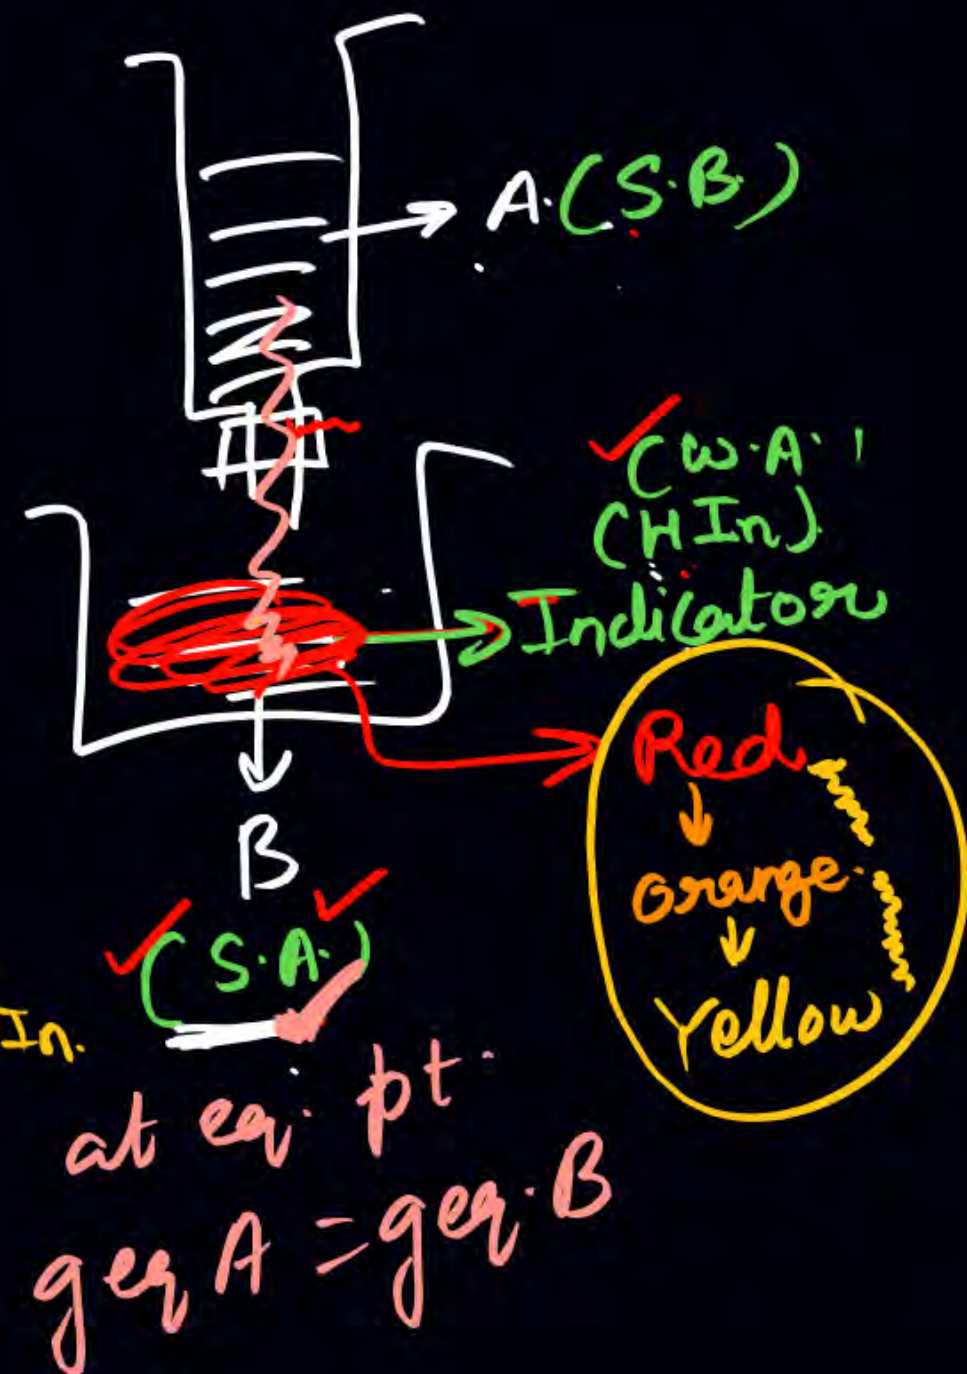 A. (S.B.)
(W.A.
(HIn)
Indicator
Red
orange
Yellow
B
(S.A.)
In.
at eq. pt.
geq A = geq. B